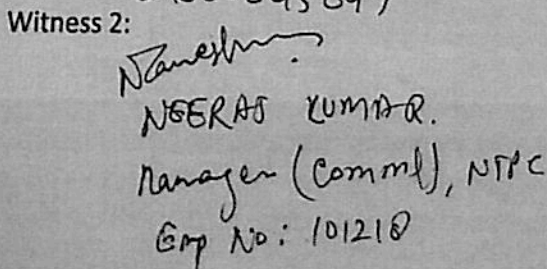 Witness 2:
NEERAJ KUMAR.
Manager (Comml), NTPC
Emp No: 101218